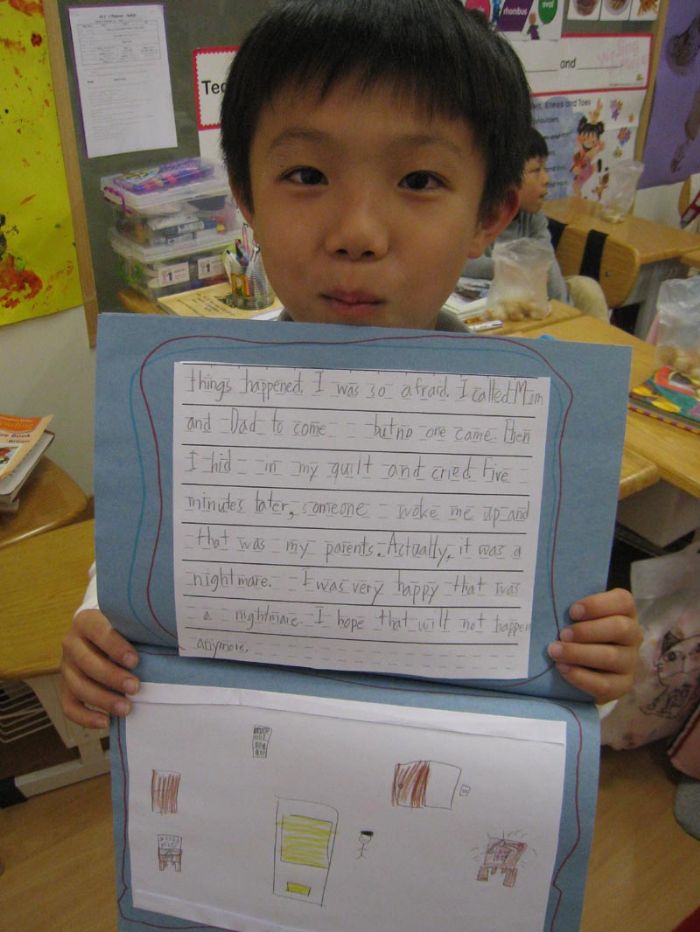 rhombus
oval
Tea
and
Knees and Toes
things happened. I was so afraid. I called Mom
and Dad to come but no one came. Then
I hid in my quilt and cried Five
minutes later, someone woke me up and
that was my parents. Actually, it was a
nightmare. I was very happy that was
a nightmare. I hope that will not happen
anymore.